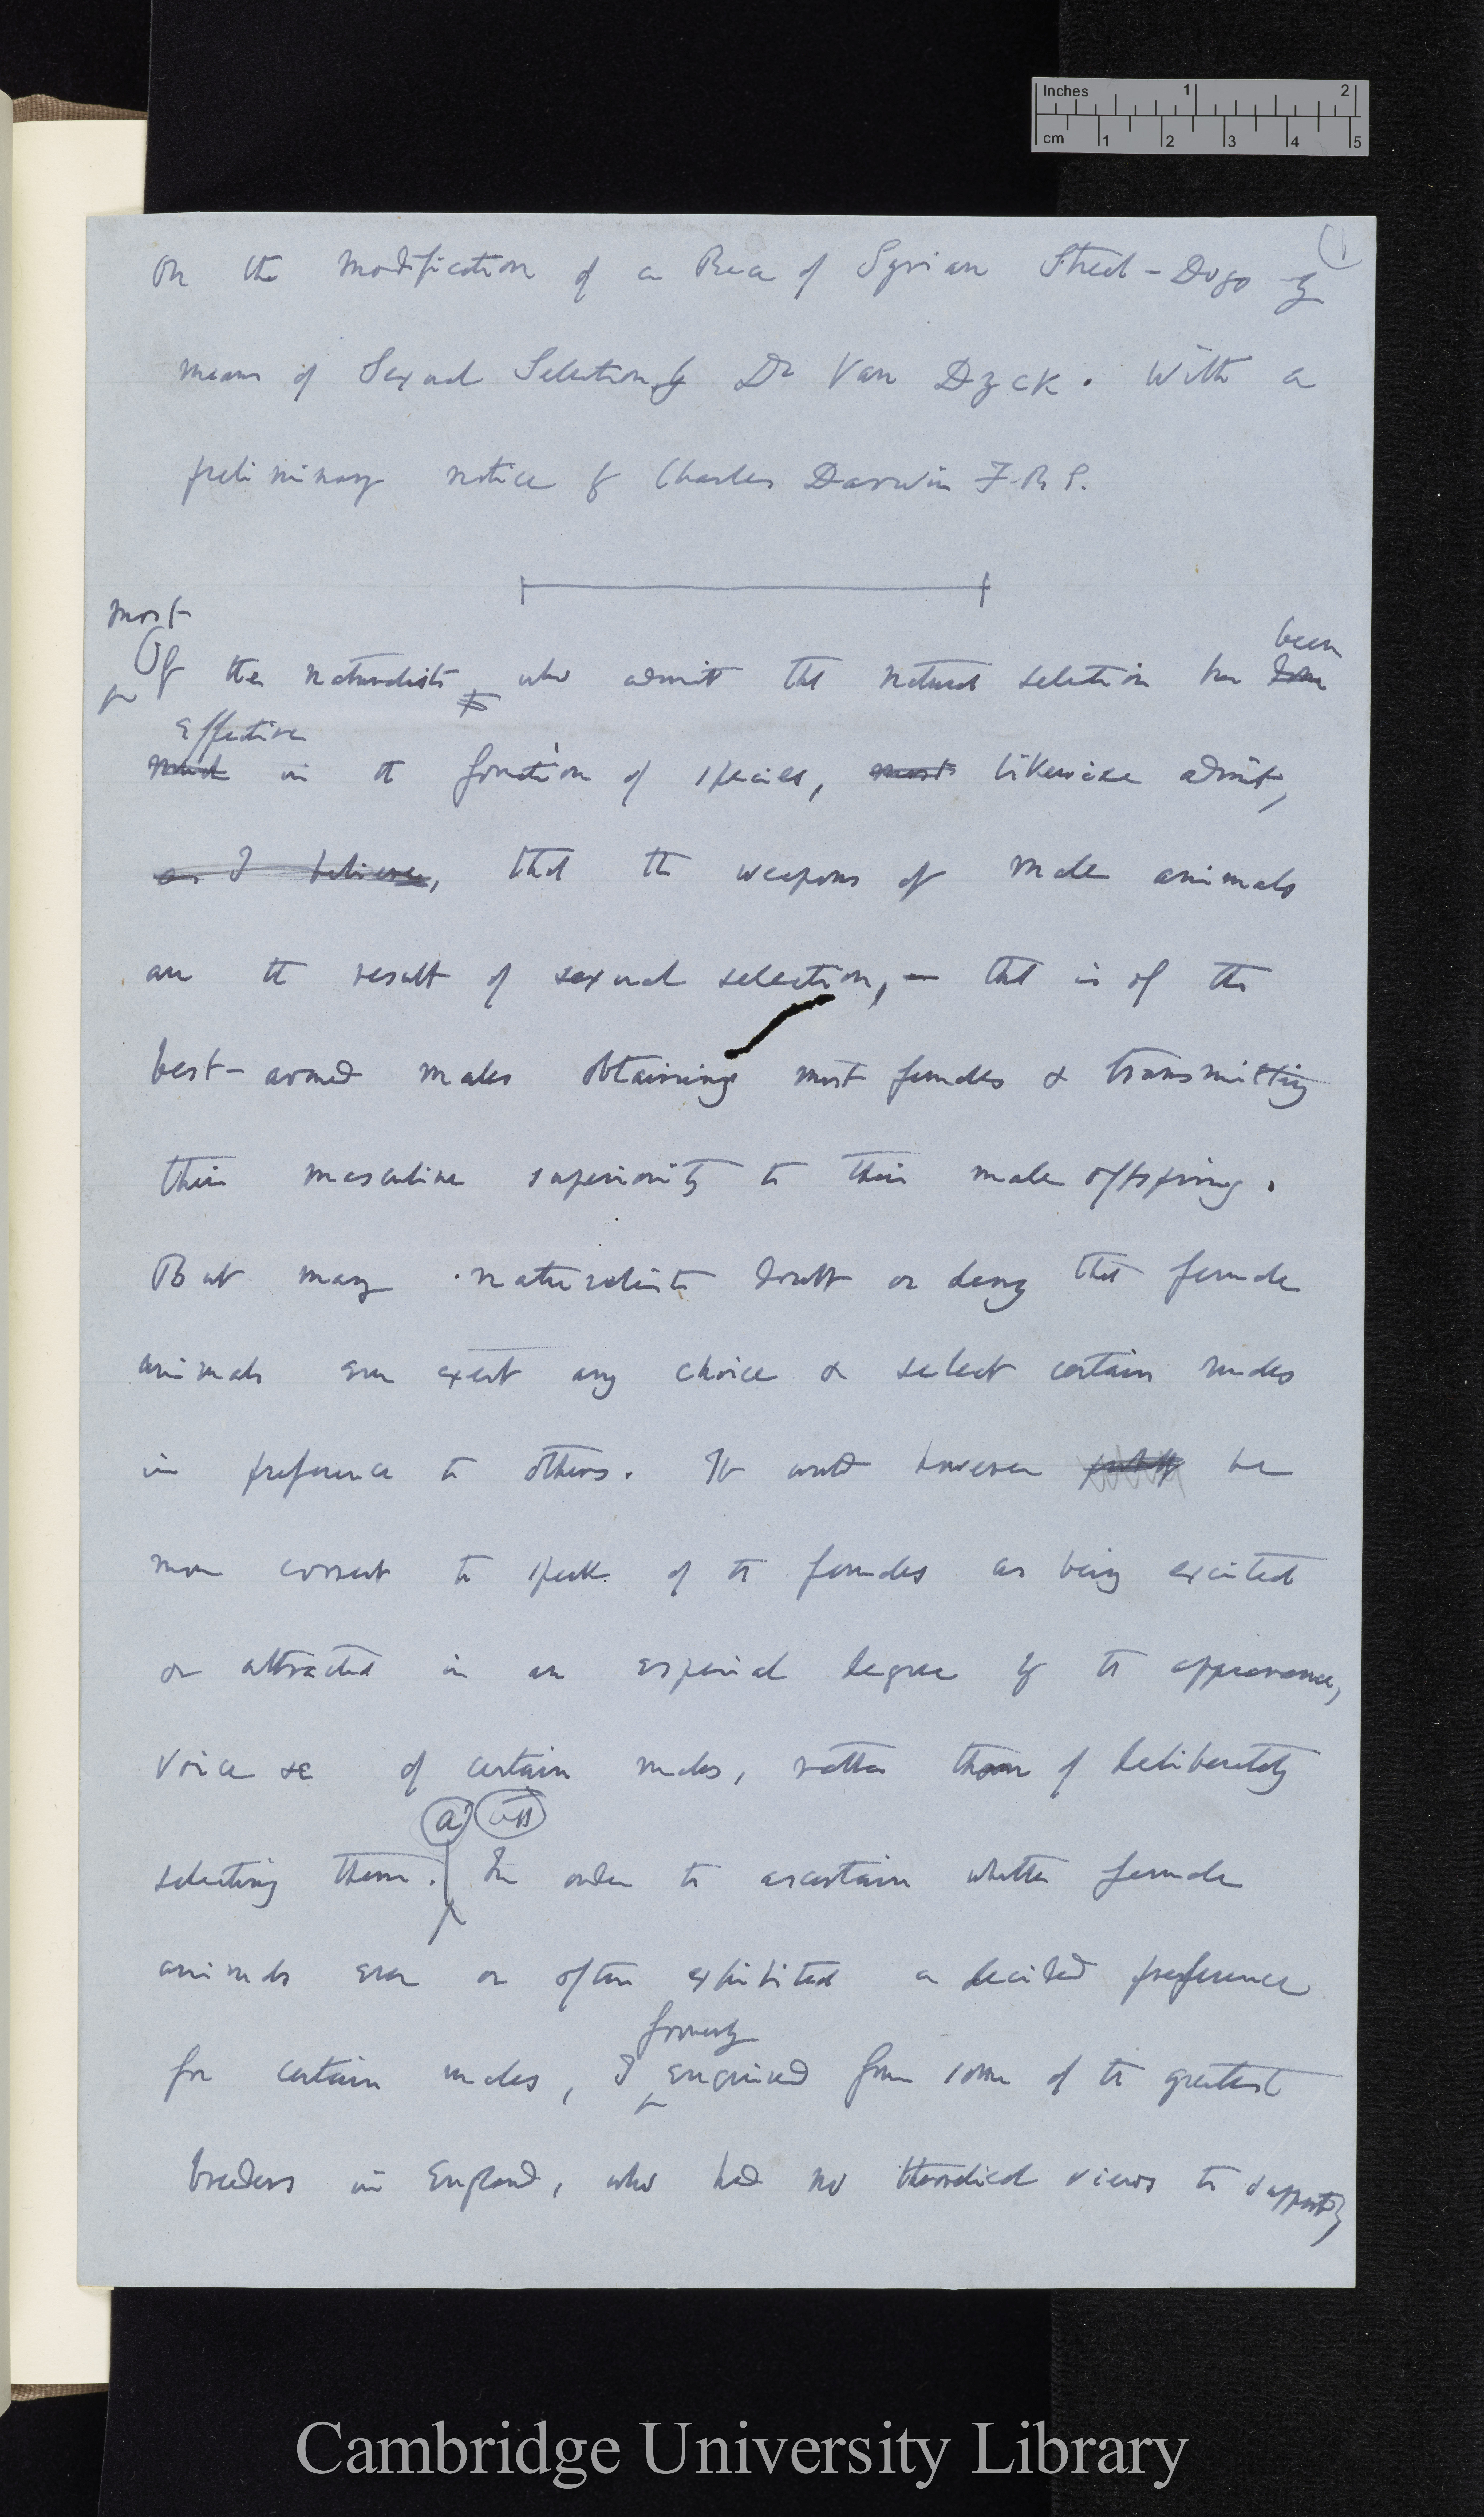 Inches 1 2
cm 1 2 3 4 5
(1
On the modification of a Race of Syrian Street-Dogs by
means of Sexual Selection by Dr Van Dyck. With a
preliminary notice by Charles Darwin F.R.S.
most been
Of the naturalists who admit that natural selection has done
effective
much in the formation of species, most likewise admit,
as I believe, that the weapons of male animals
are the result of sexual selection, — that is of the
best-armed males obtaining most females & transmitting
their masculine superiority to their male offspring.
But many naturalists doubt or deny that female
animals ever exert any choice & select certain males
in preference to others. It would however be
more correct to speak of the females as being excited
or attracted in an especial degree by the appearance,
voice &c of certain males, rather than of deliberately
(a)
selecting them. In order to ascertain whether female
animals ever or often exhibited a decided preference
formerly
for certain males, I enquired from some of the greatest
breeders in England, who had no theoretical views to support,
Cambridge University Library